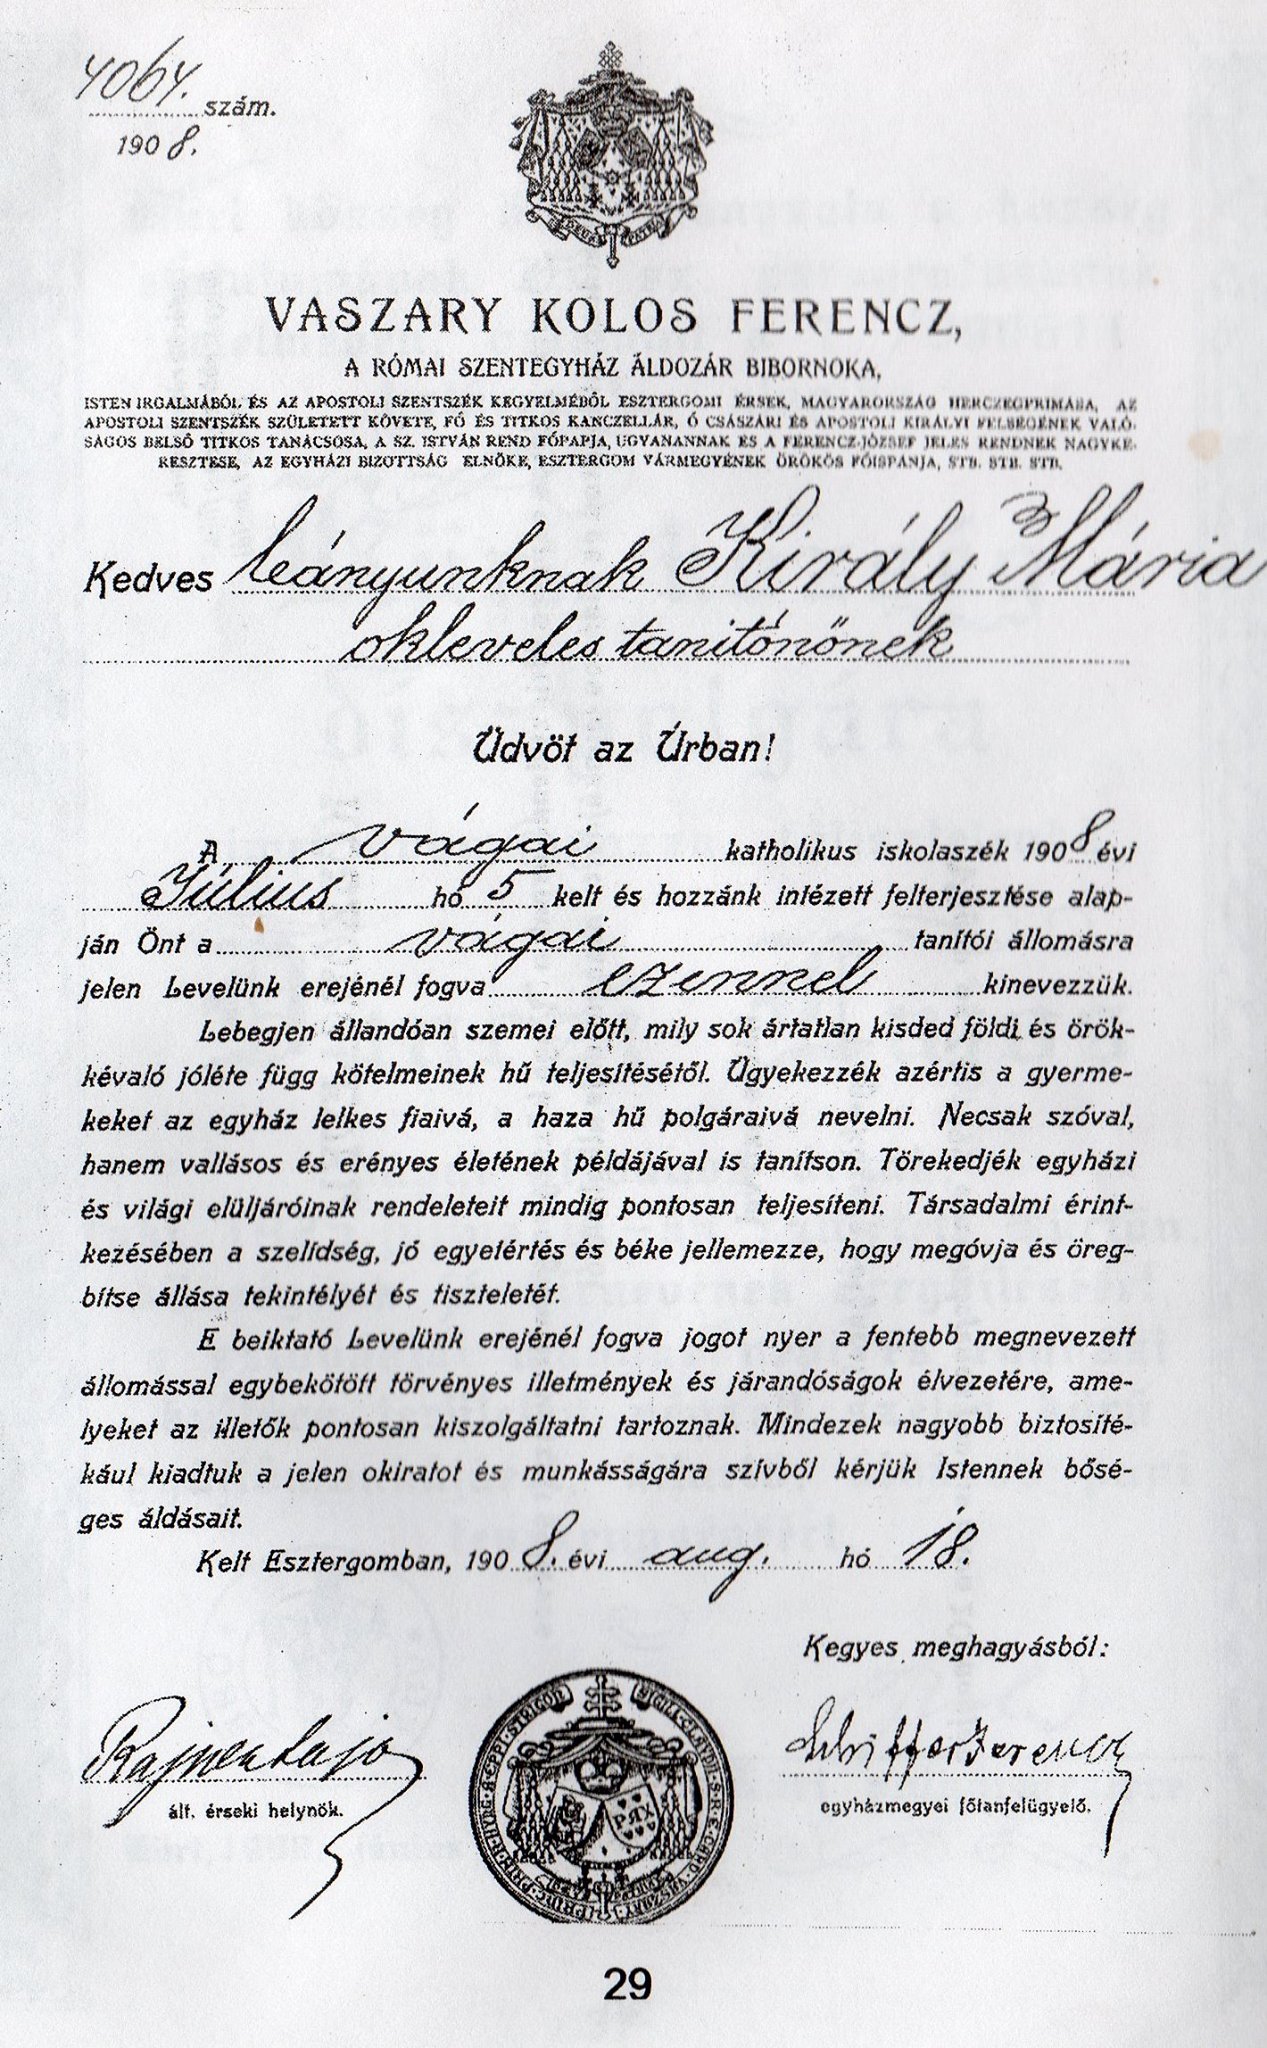 4064. szám.
1908.
VASZARY KOLOS FERENCZ,
A RÓMAI SZENTEGYHÁZ ÁLDOZÁR BIBORNOKA,
ISTEN IRGALMÁBÓL ÉS AZ APOSTOLI SZENTSZÉK KEGYELMÉBŐL ESZTERGOMI ÉRSEK, MAGYARORSZÁG HERCZEGPRIMÁSA, AZ
APOSTOLI SZENTSZÉK SZÜLETETT KÖVETE, FŐ ÉS TITKOS KANCZELLÁR, Ő CSÁSZÁRI ÉS APOSTOLI KIRÁLYI FELSÉGÉNEK VALÓ-
SÁGOS BELSŐ TITKOS TANÁCSOSA, A SZ. ISTVÁN REND FŐPAPJA, UGYANANNAK ÉS A FERENCZ-JÓZSEF JELES RENDNEK NAGYKE-
RESZTESE, AZ EGYHÁZI BIZOTTSÁG ELNÖKE, ESZTERGOM VÁRMEGYÉNEK ÖRÖKÖS FŐISPÁNJA, STB. STB. STB.
Kedves leányunknak Király Mária
okleveles tanitónőnek
Üdvöt az Úrban!
A vágai katholikus iskolaszék 1908 évi
Július hó 5 kelt és hozzánk intézett felterjesztése alap-
ján Önt a vágai tanítói állomásra
jelen Levelünk erejénél fogva ezennel kinevezzük.
Lebegjen állandóan szemei előtt, mily sok ártatlan kisded földi és örök-
kévaló jóléte függ kötelmeinek hű teljesítésétől. Ügyekezzék azértis a gyerme-
keket az egyház lelkes fiaivá, a haza hű polgáraivá nevelni. Necsak szóval,
hanem vallásos és erényes életének példájával is tanítson. Törekedjék egyházi
és világi elüljáróinak rendeleteit mindig pontosan teljesíteni. Társadalmi érint-
kezésében a szelídség, jó egyetértés és béke jellemezze, hogy megóvja és öreg-
bítse állása tekintélyét és tiszteletét.
E beiktató Levelünk erejénél fogva jogot nyer a fentebb megnevezett
állomással egybekötött törvényes illetmények és járandóságok élvezetére, ame-
lyeket az illetők pontosan kiszolgáltatni tartoznak. Mindezek nagyobb biztosíté-
kául kiadtuk a jelen okiratot és munkásságára szívből kérjük Istennek bősé-
ges áldásait.
Kelt Esztergomban, 1908. évi aug. hó 18.
Kegyes meghagyásból:
Rajner Lajos
ált. érseki helynök.
Schiffer Ferencz
egyházmegyei főtanfelügyelő.
29